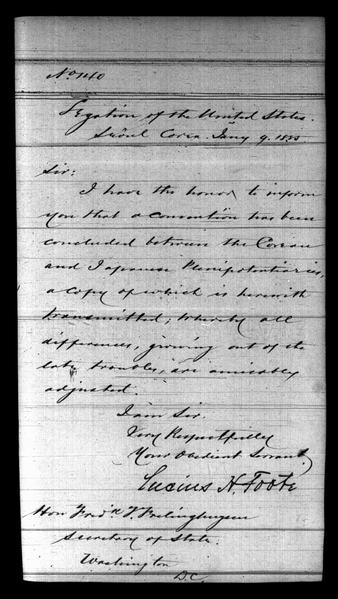 No 140
Legation of the United States.
Seoul Corea. Jany 9. 1885
Sir:
I have the honor to inform
you that a convention has been
concluded between the Corean
and Japanese Plenipotentiaries,
a copy of which is herewith
transmitted; whereby all
differences, growing out of the
late troubles, are amicably
adjusted.
I am Sir,
Very Respectfully
Your Obedient Servant
Lucius H. Foote
Hon Fredk T. Frelinghuysen
Secretary of State.
Washington
D.C.